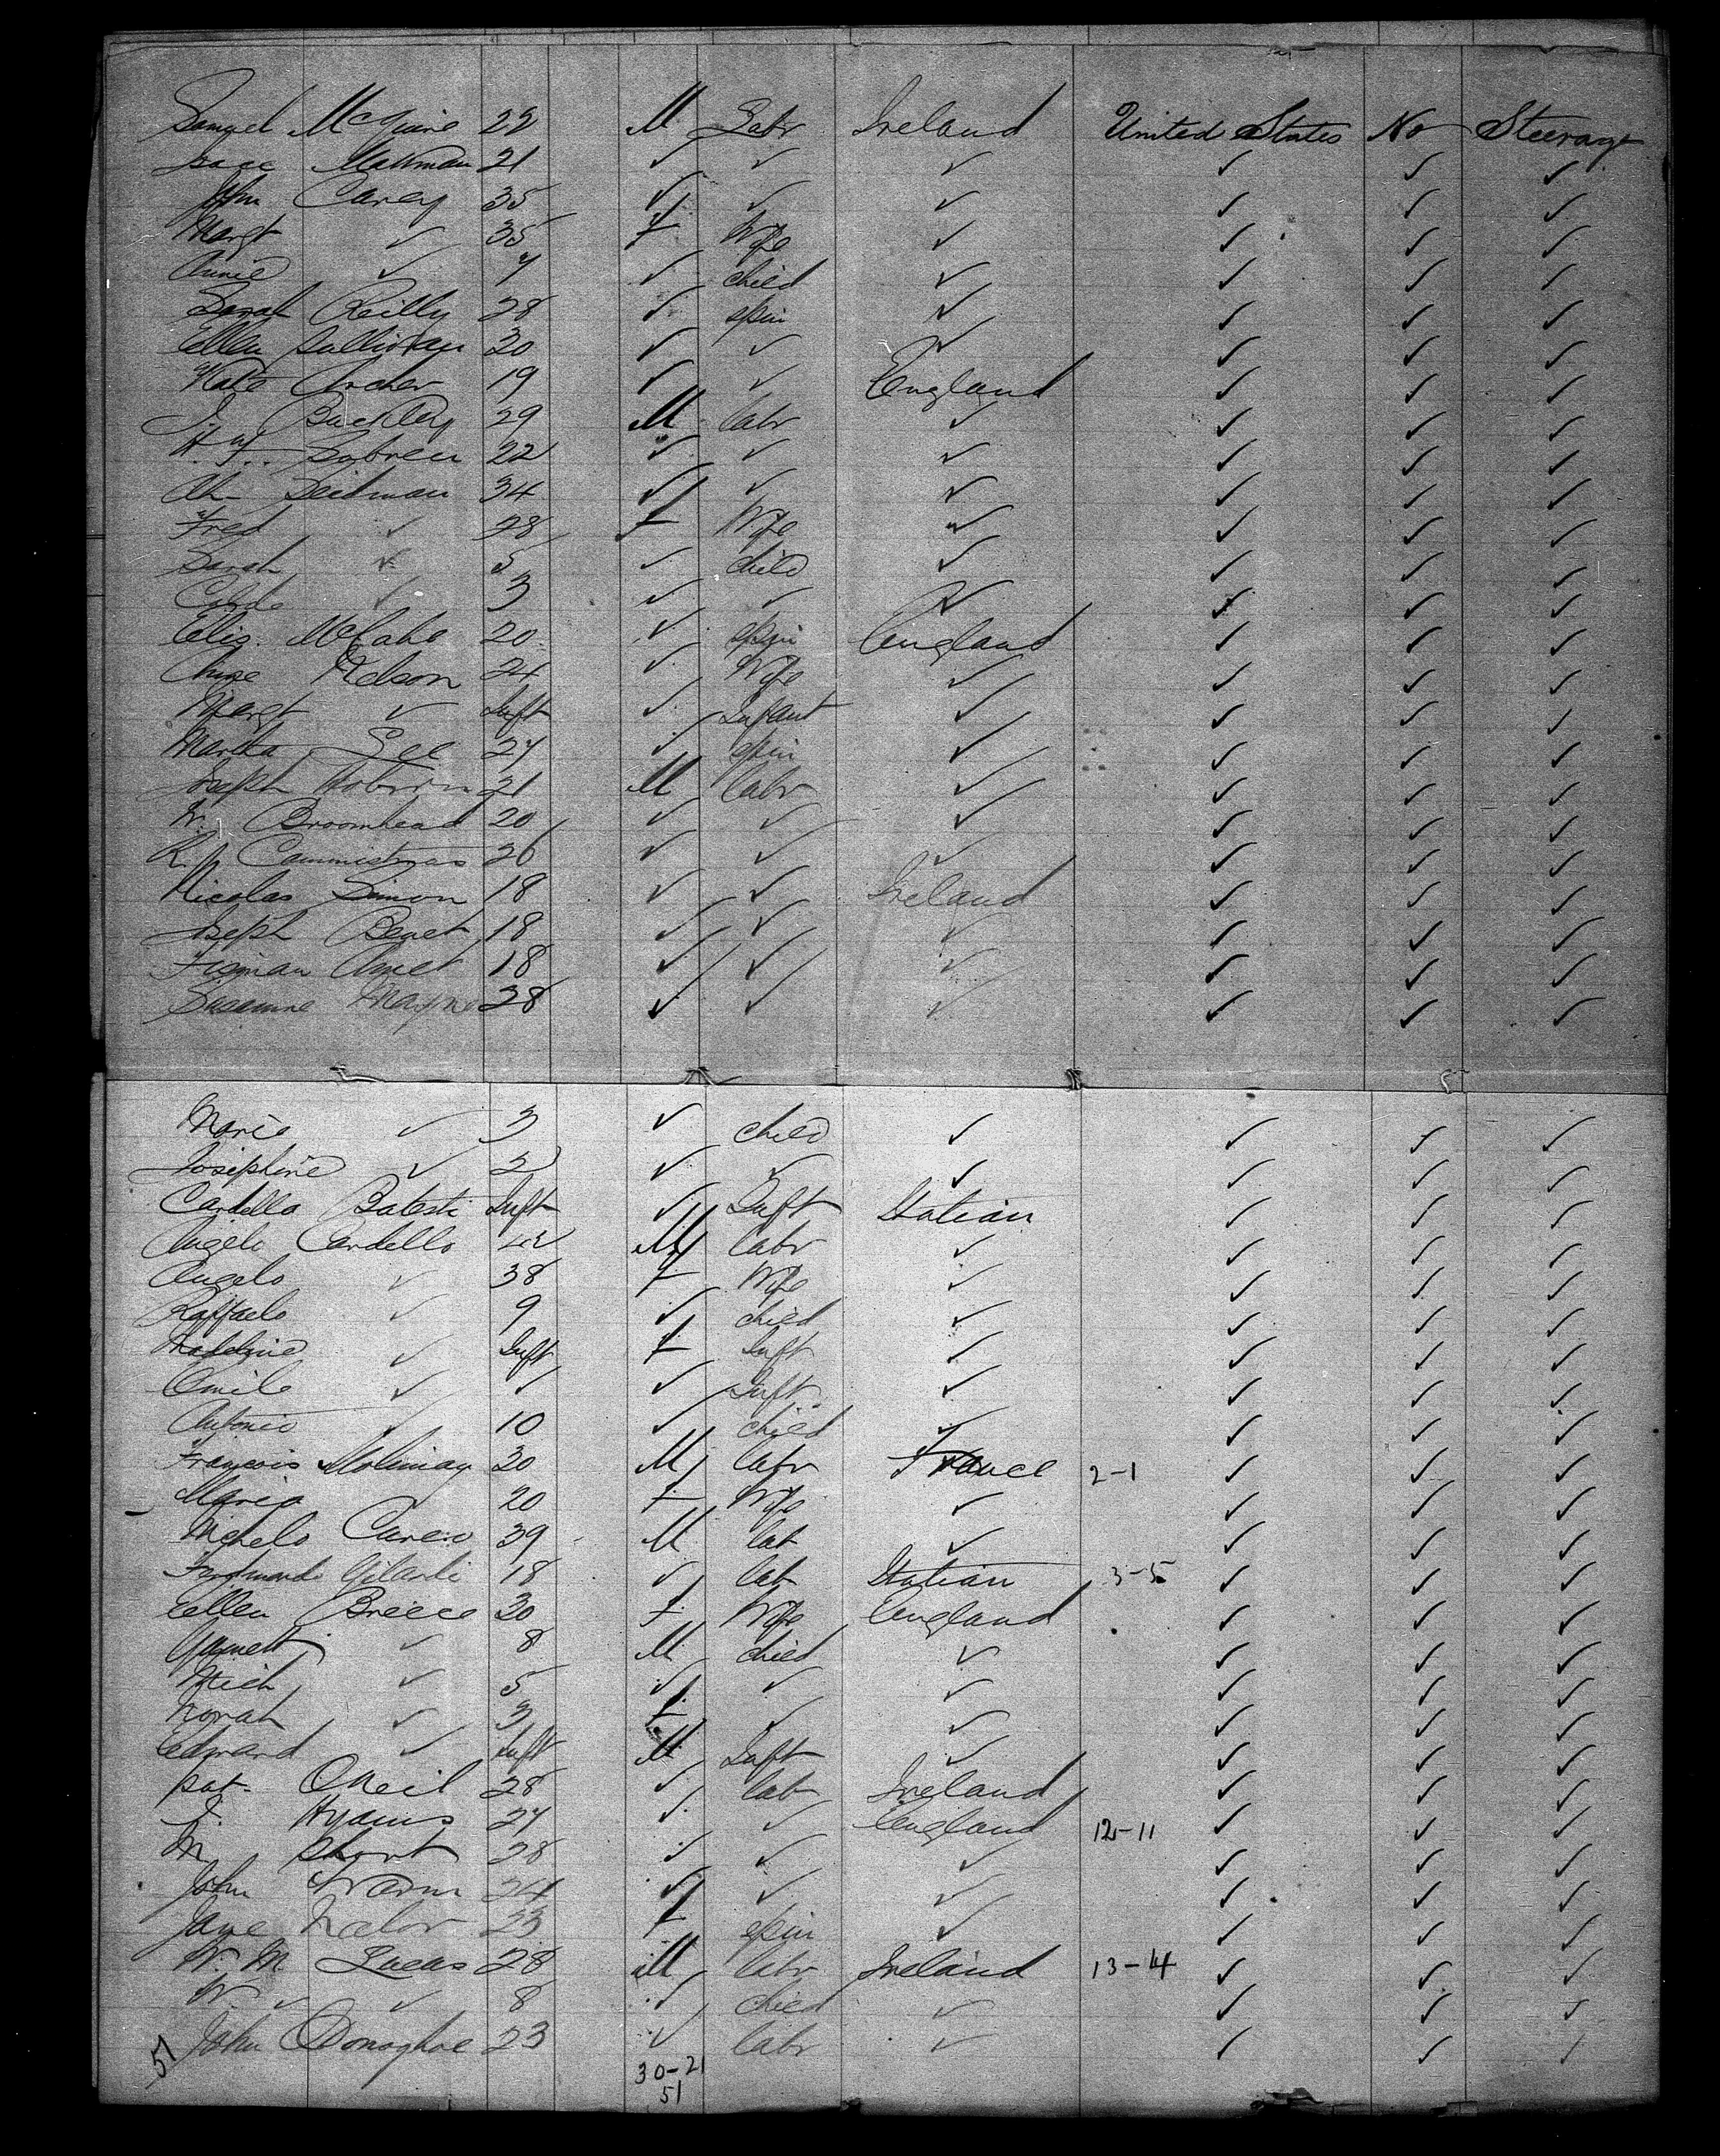 Samuel McGuire 22 M Labr Ireland United States No Steerage
Isaac 21 ✓ ✓ ✓ ✓ ✓ ✓
John Carey 35 ✓ ✓ ✓ ✓ ✓ ✓
Margt ✓ 35 F Wife ✓ ✓ ✓ ✓
Annie ✓ ✓ child ✓ ✓ ✓ ✓
Sarah Reilly 28 ✓ spin ✓ ✓ ✓ ✓
Ellen Sullivan 30 ✓ ✓ ✓ ✓ ✓ ✓
Kate Archer 19 ✓ ✓ England ✓ ✓ ✓
J. Buckley 29 M labr ✓ ✓ ✓ ✓
22 ✓ ✓ ✓ ✓ ✓ ✓
Seidman 34 ✓ ✓ ✓ ✓ ✓ ✓
Fred ✓ 28 F Wife ✓ ✓ ✓ ✓
Sarah ✓ 5 ✓ child ✓ ✓ ✓ ✓
✓ 3 ✓ ✓ ✓ ✓ ✓ ✓
Eliz. McCabe 20 ✓ spin England ✓ ✓ ✓
Nelson 24 ✓ Wife ✓ ✓ ✓ ✓
Margt ✓ Inft ✓ Infant ✓ ✓ ✓ ✓
Martha Lee 27 ✓ spin ✓ ✓ ✓ ✓
Joseph 21 M labr ✓ ✓ ✓ ✓
W. Broomhead 20 ✓ ✓ ✓ ✓ ✓ ✓
26 ✓ ✓ ✓ ✓ ✓ ✓
Nicolas Simon 18 ✓ ✓ Ireland ✓ ✓ ✓
Joseph Benet 18 ✓ ✓ ✓ ✓ ✓ ✓
18 ✓ ✓ ✓ ✓ ✓ ✓
Susanne Mayne 28 ✓ ✓ ✓ ✓ ✓ ✓
Marie ✓ 3 ✓ child ✓ ✓ ✓ ✓
Josephine ✓ 2 ✓ ✓ ✓ ✓ ✓ ✓
Cardella Batesti Inft ✓ Inft Italian ✓ ✓ ✓
Angelo Cardello M labr ✓ ✓ ✓ ✓
Angelo ✓ 38 F Wife ✓ ✓ ✓ ✓
Raffaelo ✓ 9 ✓ child ✓ ✓ ✓ ✓
Madeline ✓ Inft F Inft ✓ ✓ ✓ ✓
Emile ✓ ✓ ✓ Inft ✓ ✓ ✓ ✓
Antonio ✓ 10 ✓ child ✓ ✓ ✓ ✓
Francois 30 M labr France 2-1 ✓ ✓ ✓
Maria 20 F Wife ✓ ✓ ✓ ✓
Michelo 39 M lab ✓ ✓ ✓ ✓
Ferdinando Gilardi 18 ✓ lab Italian 3-5 ✓ ✓ ✓
Ellen Breece 30 F Wife England ✓ ✓ ✓
✓ 8 M child ✓ ✓ ✓ ✓
Mich ✓ 5 ✓ ✓ ✓ ✓ ✓ ✓
Norah ✓ 3 F ✓ ✓ ✓ ✓ ✓
Edward ✓ Inft M Inft ✓ ✓ ✓ ✓
Pat. ONeil 28 ✓ lab Ireland ✓ ✓ ✓
Hyams 27 ✓ ✓ England 12-11 ✓ ✓ ✓
M Short 28 ✓ ✓ ✓ ✓ ✓ ✓
John 24 ✓ ✓ ✓ ✓ ✓ ✓
Jane 23 F spin ✓ ✓ ✓ ✓
W. M Lucas 28 M labr Ireland 13-14 ✓ ✓ ✓
W. ✓ ✓ 8 ✓ child ✓ ✓ ✓ ✓
51 John ODonoghoe 23 ✓ labr ✓ ✓ ✓ ✓
30-21
51